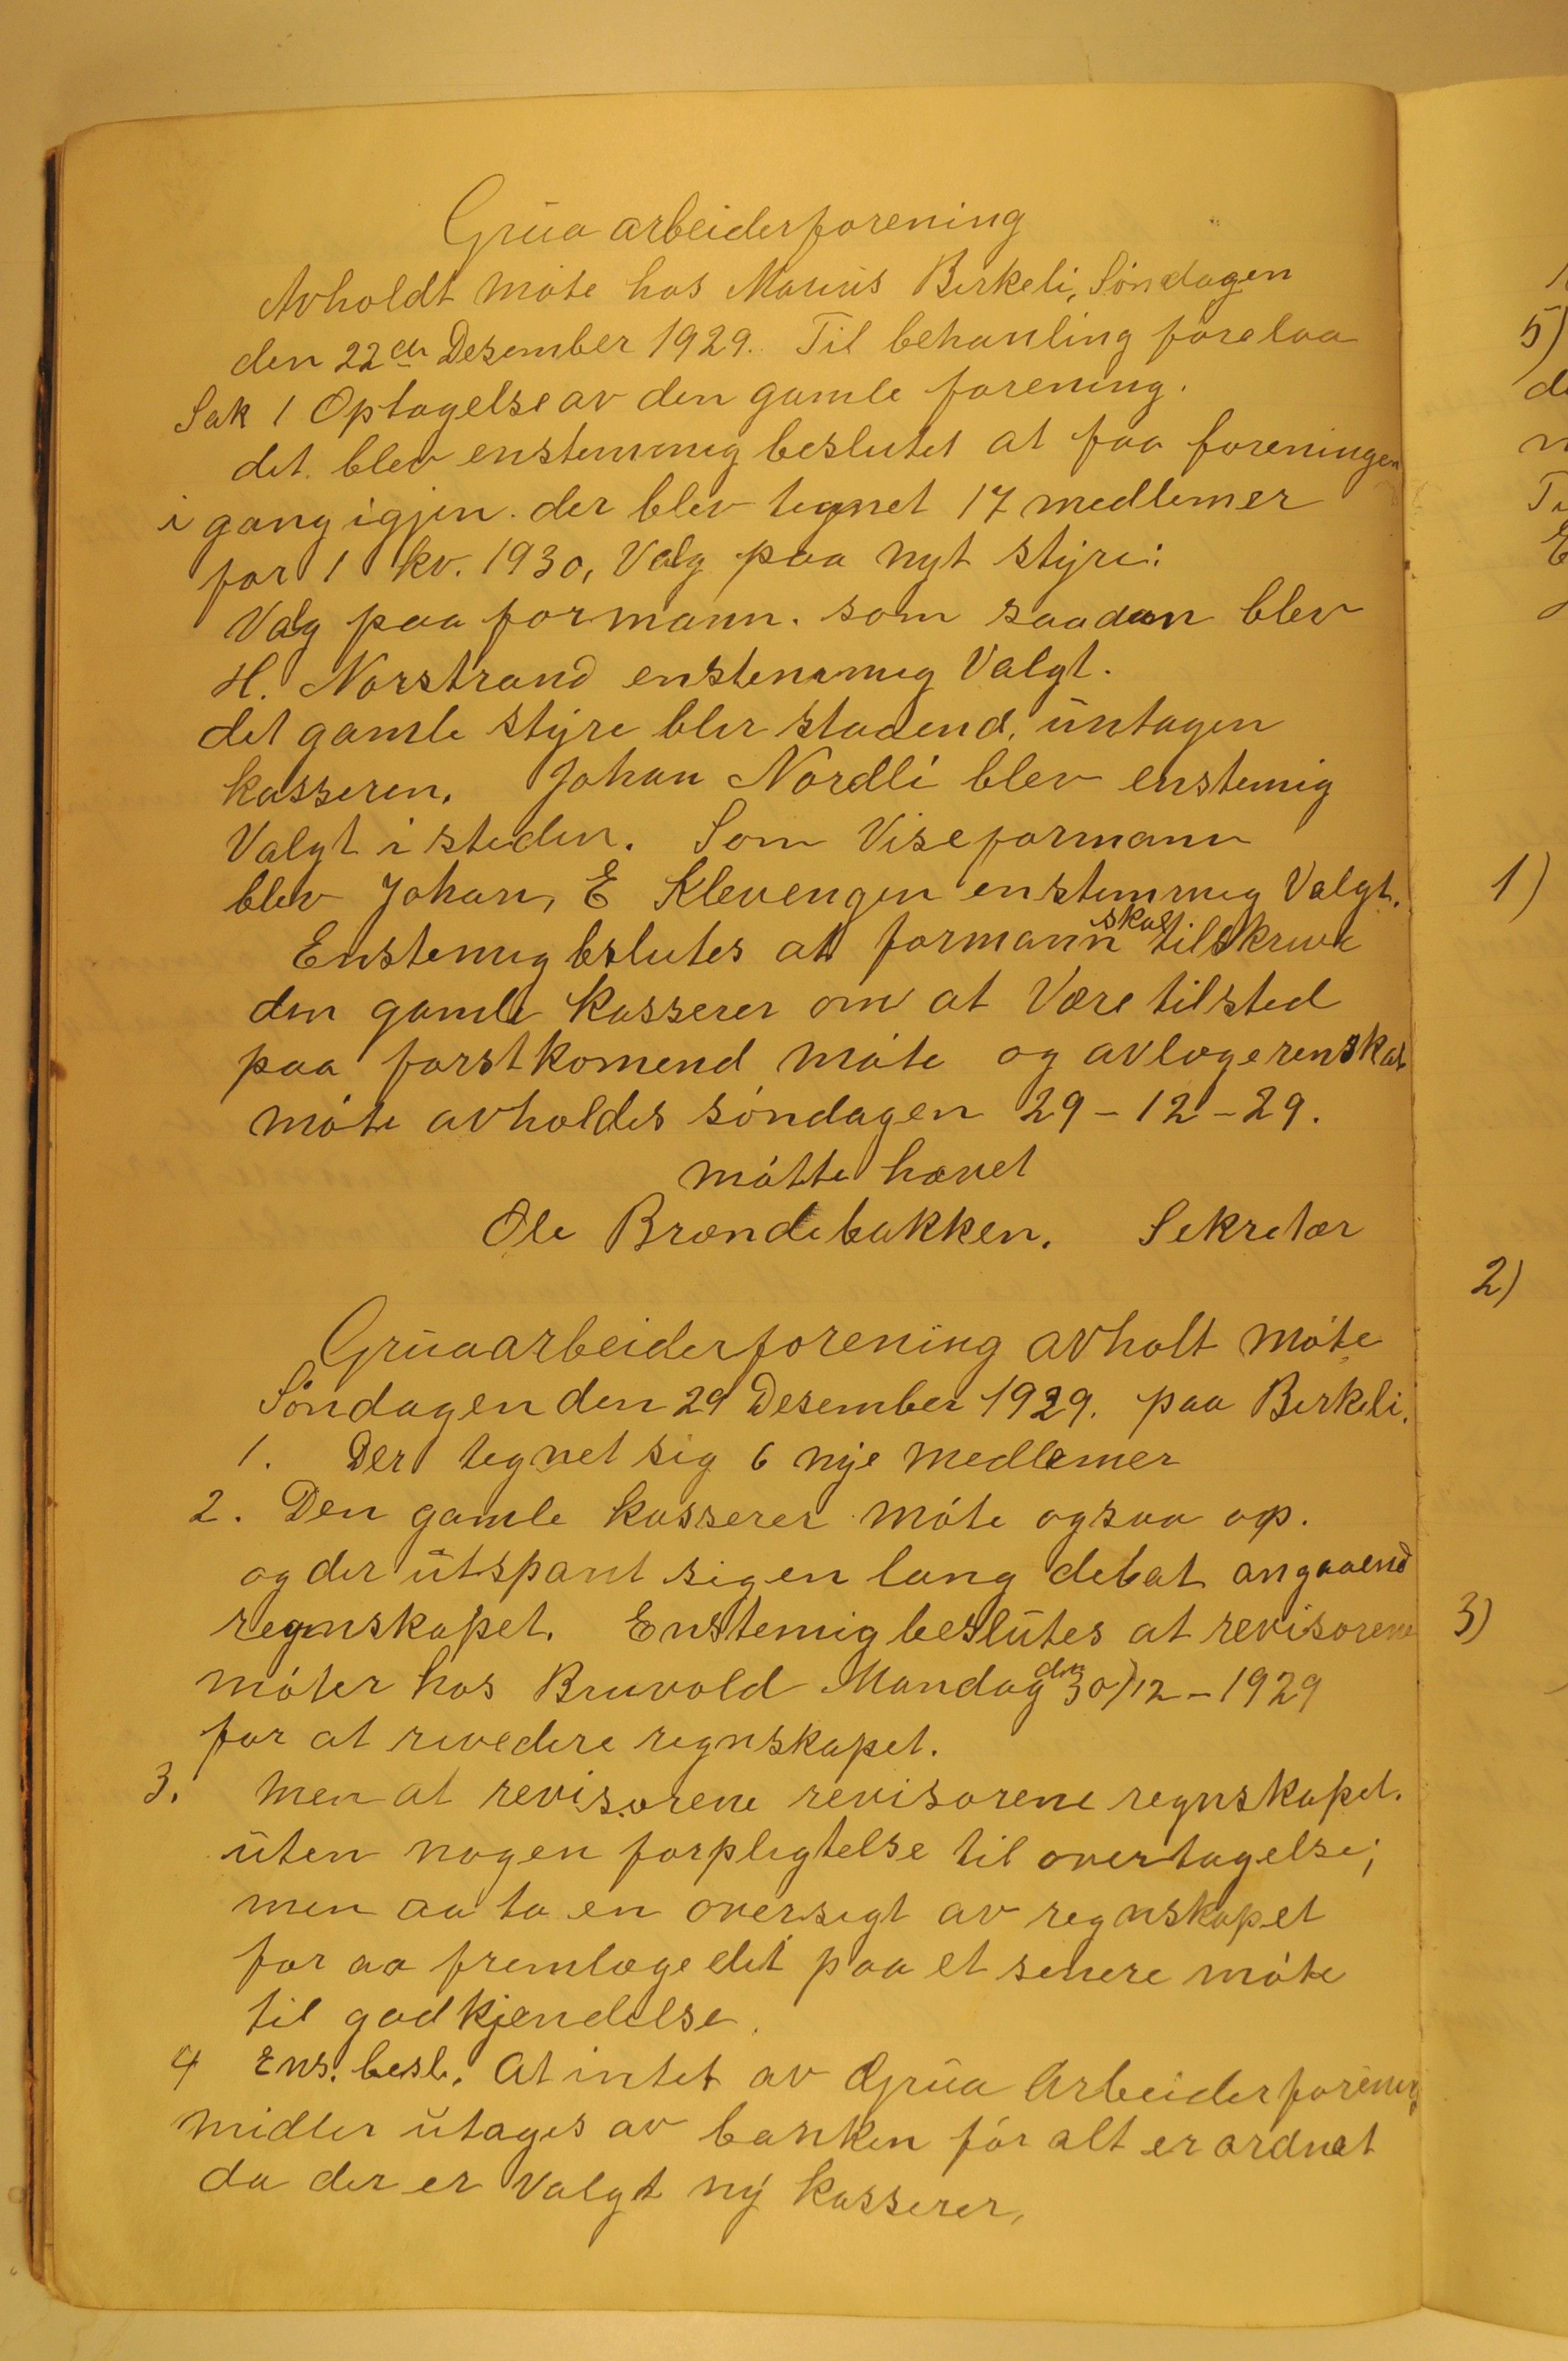 Grua arbeiderforening
Avholdt møte hos Marius Birkeli, Søndagen
den 22de Desember 1929. Til behanling forelaa
Sak 1 Optagelse av den gamle forening.
det blev enstemmig beslutet at faa foreningen
i gang igjen. der blev tegnet 17 medlemer
for 1 kv. 1930, Valg paa nyt styre:
Valg paa formann. som saadan blev
H. Norstrand enstemmig Valgt.
det gamle styre blir staaend, untagen
kasseren. Johan Nordli blev enstemig
Valgt i steden. Som Viseformann
blev Johan, E Klevengen enstemmig Valgt.
Enstemig beslutes at formann skal tilskrive
den gamle Kasserer om at Være tilsted
paa førstkomend møte og avlæge renskab
møte avholdes søndagen 29-12-29.
møtte hævet
Ole Brændebakken. Sekretær
Gruaarbeiderforening avholt møte
Søndagen den 29 Desember 1929. paa Birkeli.
1. Der tegnet sig 6 nye medlemer
2. Den gamle kasserer møte ogsaa op.
og der utspant sig en lang debat angaaend
regnskapet. Enstemig beslutes at revisorene
møter hos Bruvold Mandag den 30/12-1929
for at revedere regnskapet.
3. men at revisorene revisorene regnskapet.
uten nogen forpligtelse til overtagelse;
men aa ta en oversigt av regnskapet
for aa fremlæge det paa et senere møte
til godkjendelse.
4 Ens. besl. At intet av Grua Arbeiderforening
midler utages av banken før alt er ordnet
da der er Valgt ny kasserer,
5)
1)
2)
3)